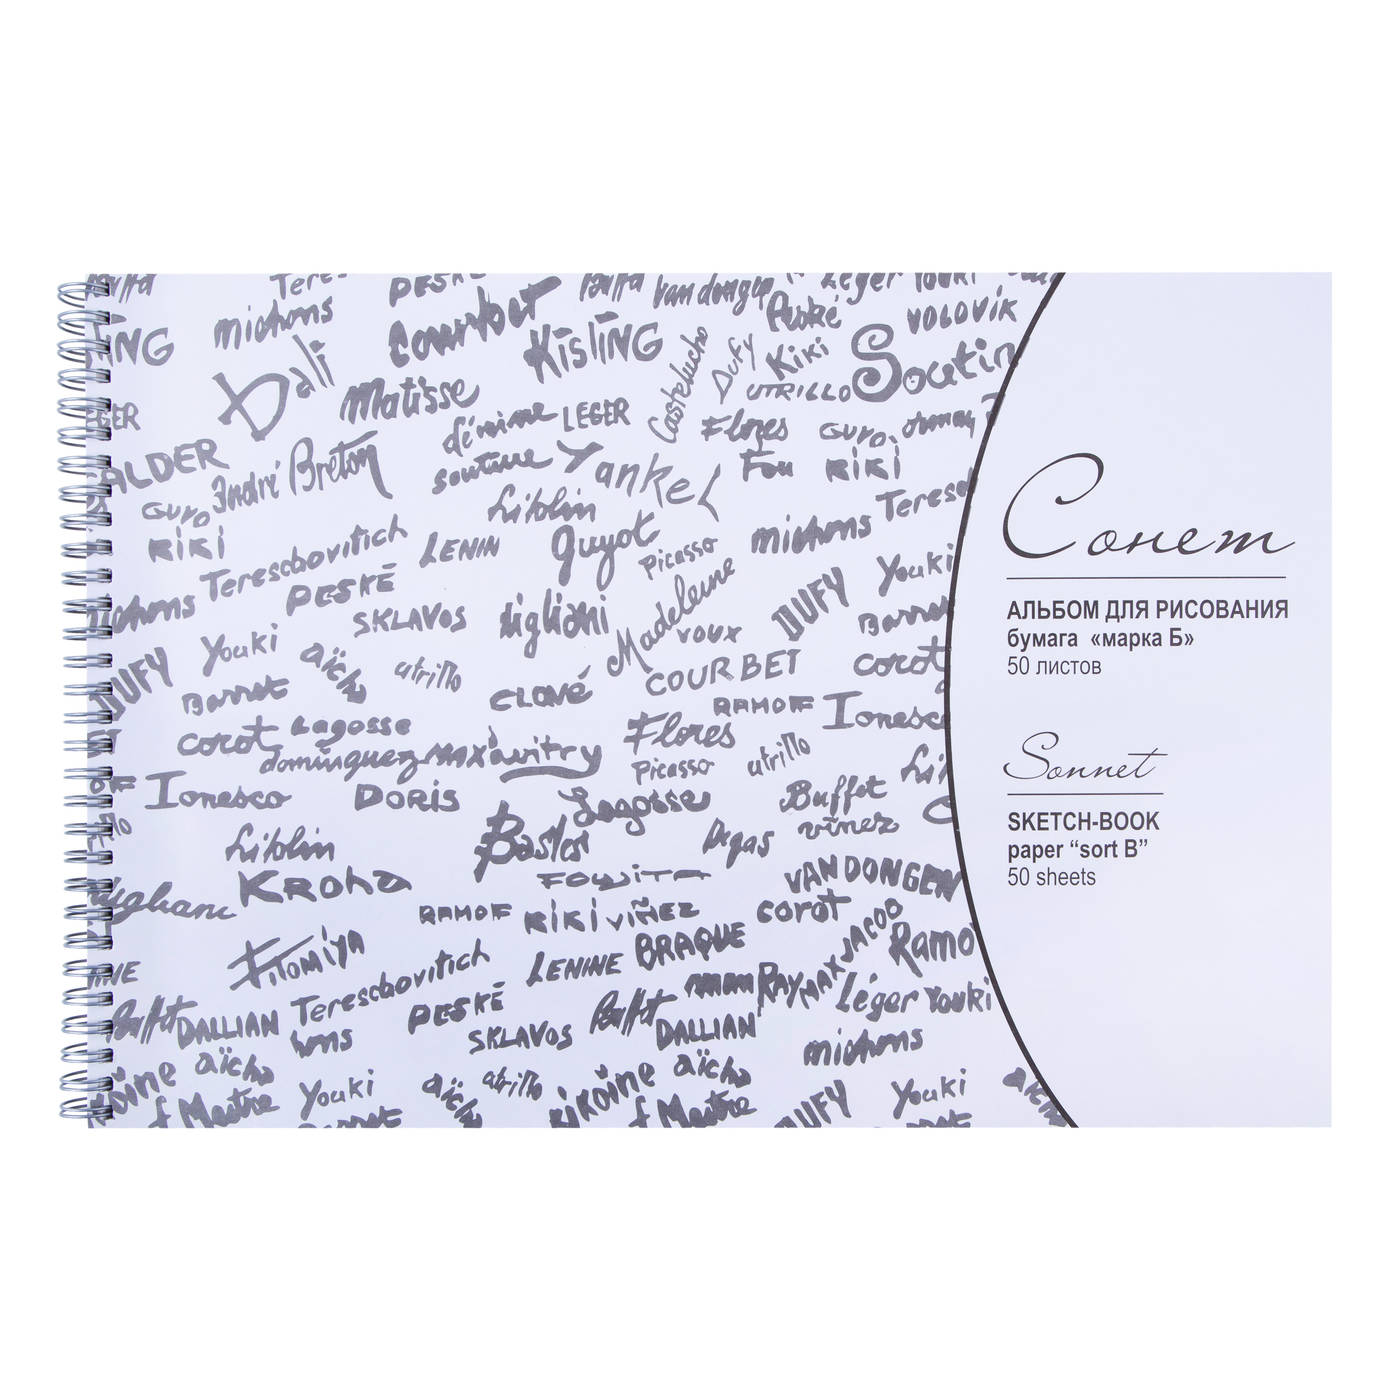 Buffa
Teres
PESKÉ
Buffa
van dongen
Léger
Youki
michons
courbet
Peské
VOLOVIK
KING
Dali
KISLING
Castelucho
Dufy
KiKi
Soutin
Matisse
UTRILLO
LEGER
LEGER
Flores
GUYO
CALDER
André Breton
soutine
Yankel
Fou
KIKI
GUYO
Litolin
Teresc
KIKI
Tereschovitich
LENIN
guyot
Picasso
michons
PESKÉ
Madeleine
Youki
michons
SKLAVOS
DUFY
Barret
Youki
aïcha
VOUX
DUFY
utrillo
COURBET
corot
Barret
CLOVÉ
RAMOF
Ionesco
corot
Lagosse
Flores
domínguez
MAX
Picasso
utrillo
Ionesco
DORIS
Lagosse
Buffet
Degas
vinez
Litolin
Bastes
FOUJITA
VAN DONGEN
KROHA
RAMOF
KIKI
VIÑEZ
corot
FITOMIYA
BRAQUE
JACOB
Ramo
LENINE
Tereschovitich
PESKÉ
RAY
MAX
Léger
Youki
Buffet
DALLIAN
SKLAVOS
Buffet
DALLIAN
michons
aïcha
aïcha
Youki
aïcha
utrillo
KIKOÏNE
DUFY
Youki
Сонет
АЛЬБОМ ДЛЯ РИСОВАНИЯ
бумага «марка Б»
50 листов
Sonnet
SKETCH-BOOK
paper “sort B”
50 sheets